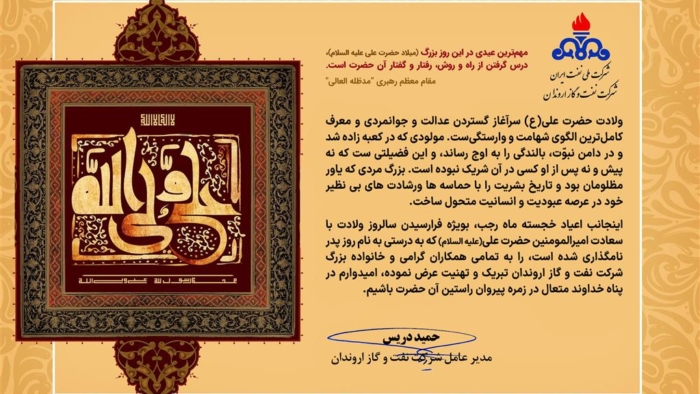 شرکت ملی نفت ایران
شرکت نفت و گاز اروندان
مهم‌ترین عیدی در این روز بزرگ (میلاد حضرت علی علیه السلام)،
درس گرفتن از راه و روش، رفتار و گفتار آن حضرت است.
مقام معظم رهبری "مدظله العالی"
ولادت حضرت علی(ع) سرآغاز گستردن عدالت و جوانمردی و معرف
کامل‌ترین الگوی شهامت و وارستگی‌ست. مولودی که در کعبه زاده شد
و در دامن نبوّت، بالندگی را به اوج رساند، و این فضیلتی ست که نه
پیش و نه پس از او کسی در آن شریک نبوده است. بزرگ مردی که یاور
مظلومان بود و تاریخ بشریت را با حماسه ها ورشادت های بی نظیر
خود در عرصه عبودیت و انسانیت متحول ساخت.
اینجانب اعیاد خجسته ماه رجب، بویژه فرارسیدن سالروز ولادت با
سعادت امیرالمومنین حضرت علی(علیه السلام) که به درستی به نام روز پدر
نامگذاری شده است، را به تمامی همکاران گرامی و خانواده بزرگ
شرکت نفت و گاز اروندان تبریک و تهنیت عرض نموده، امیدوارم در
پناه خداوند متعال در زمره پیروان راستین آن حضرت باشیم.
حمید دریس
مدیر عامل شرکت نفت و گاز اروندان
لا اله الا الله
علی ولی الله